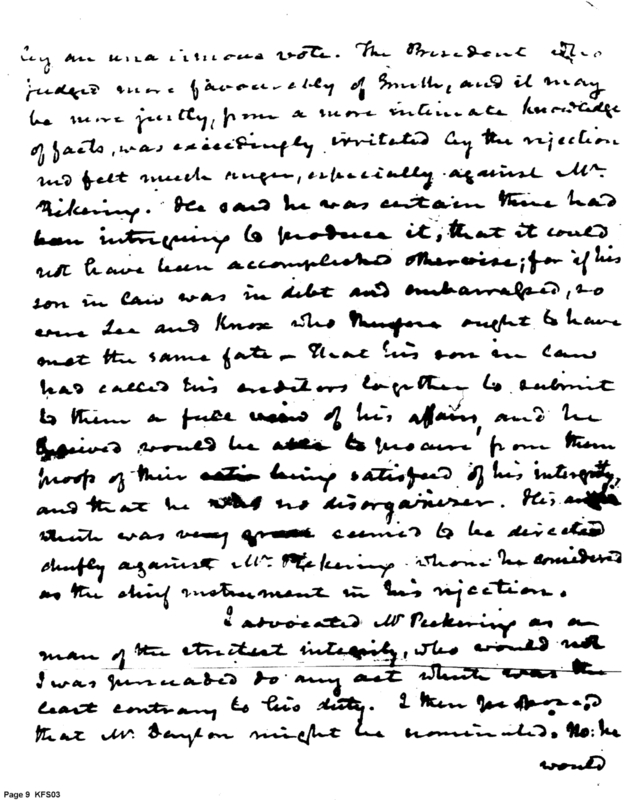 by an unanimous vote. The President who
judged more favourably of Smith, and it may
be more justly, from a more intimate knowledge
of facts, was exceedingly irritated by the rejection
and felt much anger, especially against Mr.
Pikering. He said he was certain there had
been intriguing to produce it, that it could
not have been accomplished otherwise; for if his
son in law was in debt and embarrassed, so
were Lee and Knox who ought to have
met the same fate - That his son in law
had called his creditors together to submit
to them a full view of his affairs, and he
would be able to procure from them
proofs of their being satisfied of his integrity,
and that he was no disorganizer. His
which was very great seemed to be directed
chiefly against Mr. Pickering whom he considered
as the chief instrument in his rejection.
I advocated Mr Peckering as a
man of the strictest integrity, who would not
I was persuaded do any act which was the
least contrary to his duty. I then proposed
that Mr. Dayton might be nominated. No: he
would
Page 9 KFS03